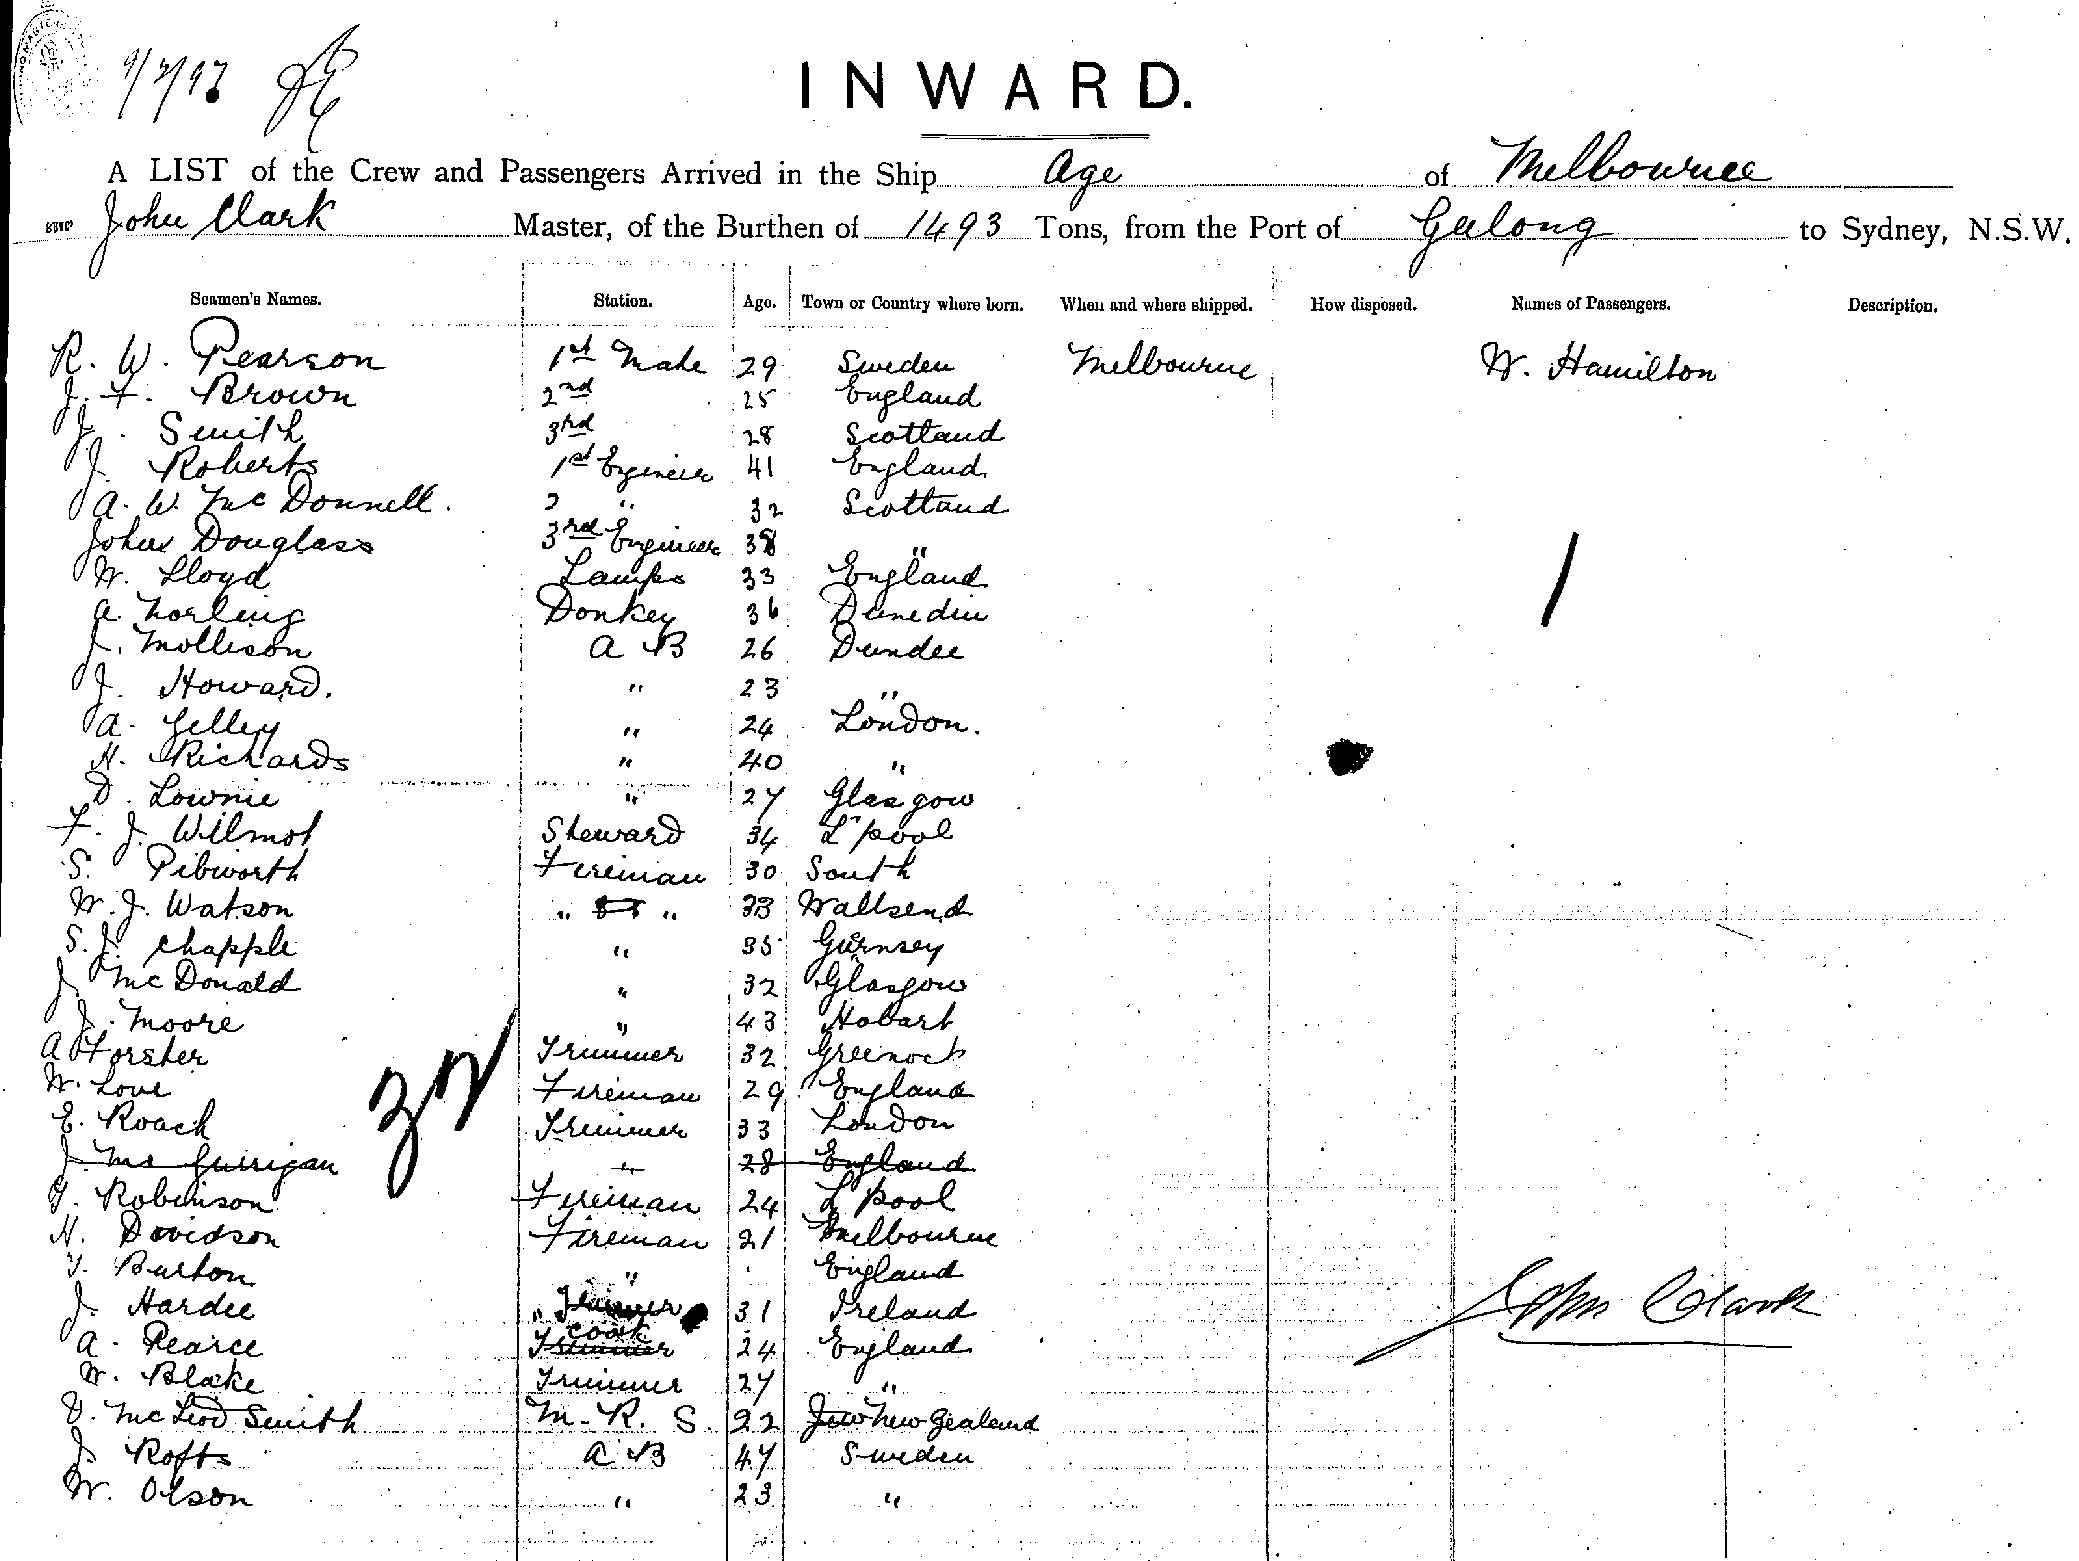 9/7/97
INWARD.
A LIST of the Crew and Passengers Arrived in the Ship Age of Melbourne
John Clark Master, of the Burthen of 1493 Tons, from the Port of Geelong to Sydney, N.S.W.
Seamen's Names. Station. Age. Town or Country where born. When and where shipped. How disposed. Names of Passengers. Description.
R. W. Pearson 1st Mate 29 Sweden Melbourne W. Hamilton
J. F. Brown 2nd 25 England
J. Smith 3rd 28 Scotland
J. Roberts 1st Engineer 41 England
A. W. McDonnell. 2 " 32 Scotland
John Douglass 3rd Engineer 38 "
W. Lloyd Lamps 33 England
A. Norling Donkey 36 Dunedin
J. Mollison A B 26 Dundee
J. Howard. " 23 "
A. Gelley " 24 London.
H. Richards " 40 "
D. Lownie " 27 Glasgow
F. J. Wilmot Steward 34 L'pool
S. Pibworth Fireman 30 South
W. J. Watson " " 33 Wallsend
S. J. Chapple " 35 Guernsey
J. McDonald " 32 Glasgow
J. Moore " 43 Hobart
A Forster Trimmer 32 Greenock
W. Love Fireman 29 England
E. Roach Trimmer 33 London
32
J. Mc Gurrigan " 28 England
T. Robinson Fireman 24 L'pool
H. Davidson Fireman 21 Melbourne
T. Burton " England
J. Hardee " Trimmer 31 Ireland
A. Pearce Trimmer cook 24 England
W. Blake Trimmer 27 "
D. McLeod Smith M. R. S. 22 New Zealand
J. Rofts A B 47 Sweden
W. Olson " 23 "
1
John Clark